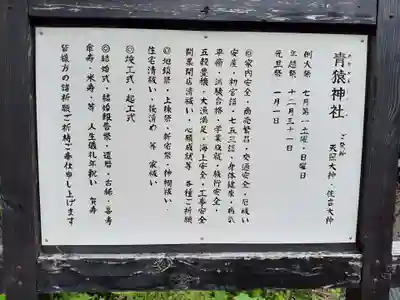 青猿神社
ご祭神 天照大神・住吉大神
例大祭 七月第一土曜・日曜日
年越祭 十二月三十一日
元旦祭 一月一日
◎家内安全・商売繁昌・交通安全・厄祓い
安産・初宮詣・七五三詣・身体健康・病気
平癒・試験合格・学業成就・旅行安全・
五穀豊穣・大漁満足・海上安全・工事安全
開業開店清祓い・心願成就等 各種ご祈願
◎地鎮祭・上棟祭・新宅祭・神棚祓い・
住宅清祓い・浄め等 家祓い
◎竣工式・起工式
◎結婚式・結婚報告祭・還暦・古稀・喜寿
傘寿・米寿・等 人生儀礼年祝い 賀寿
皆様方の諸祈願ご祈祷ご奉仕申し上げます